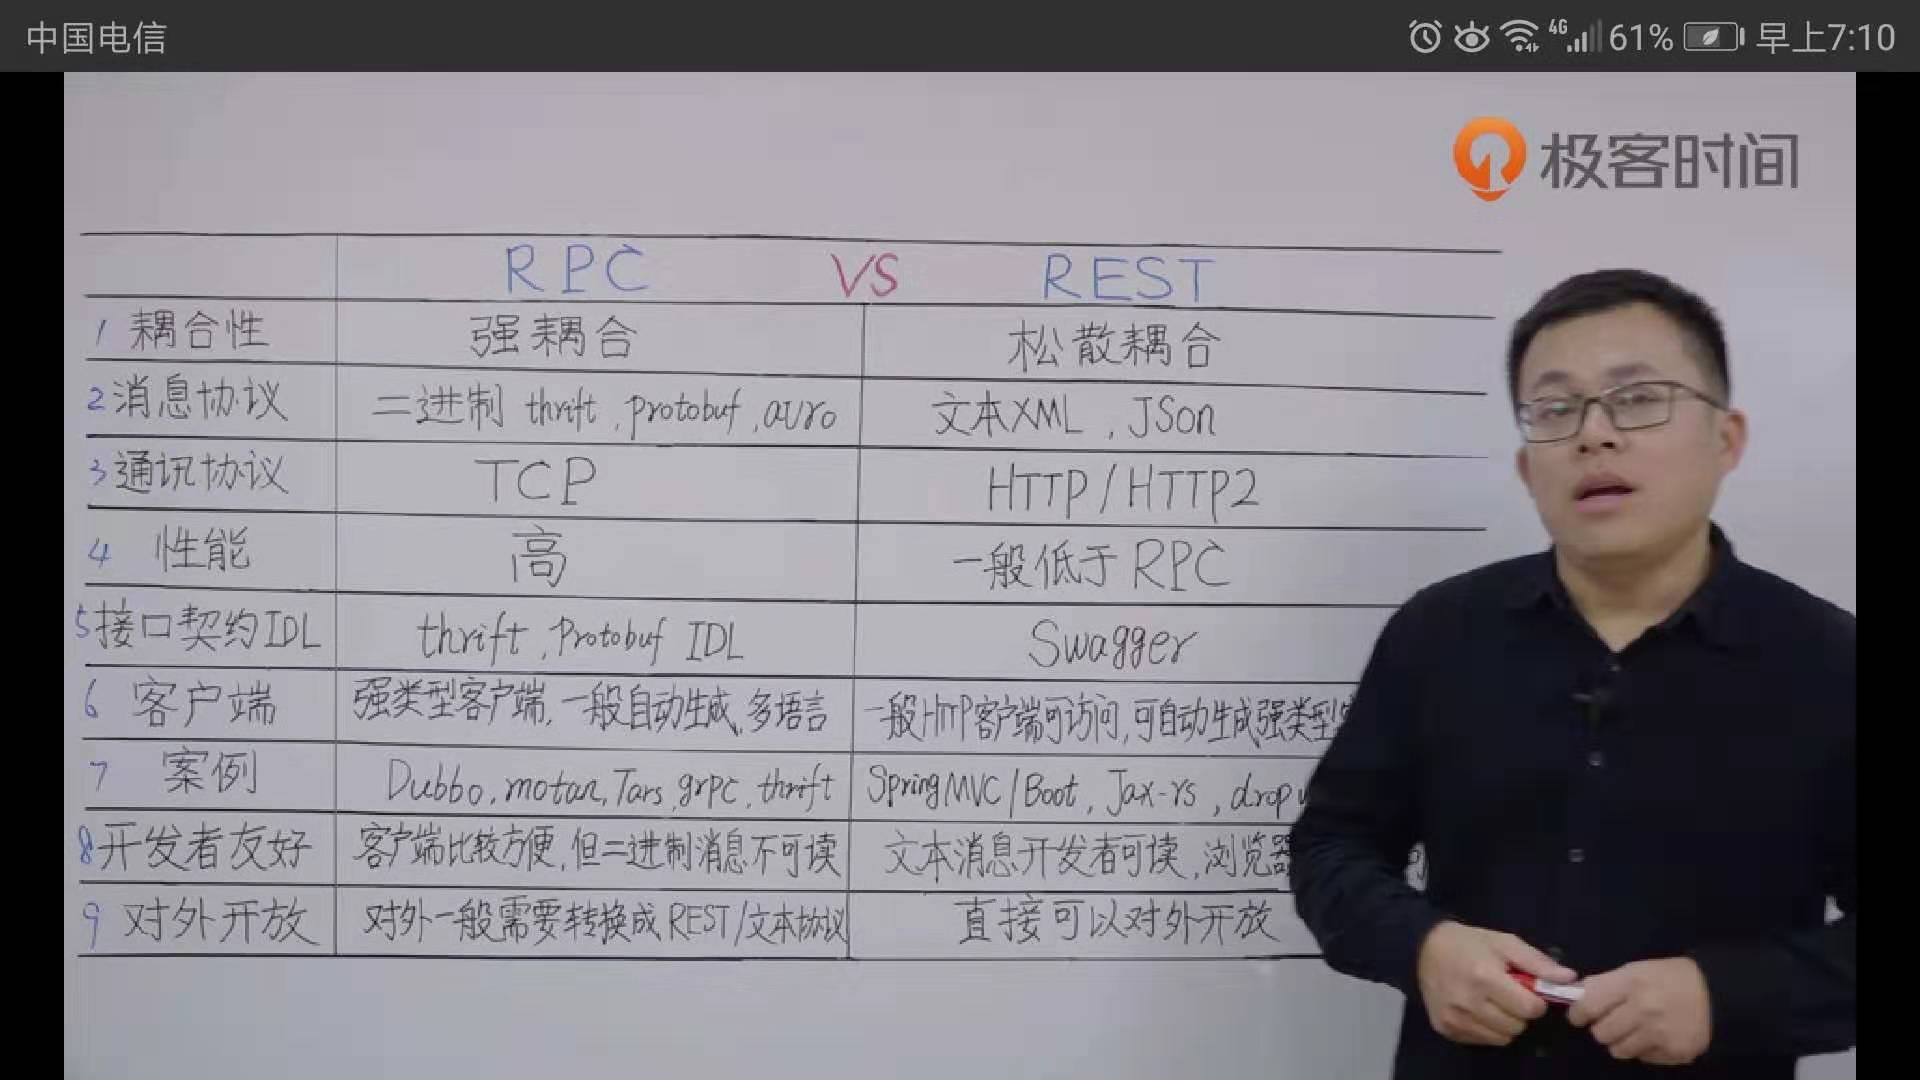 中国电信 4G 61% 早上7:10
极客时间
RPC VS REST
1 耦合性 强耦合 松散耦合
2 消息协议 二进制 thrift, protobuf, avro 文本XML, JSon
3 通讯协议 TCP HTTP/HTTP2
4 性能 高 一般低于RPC
5 接口契约IDL thrift, Protobuf IDL Swagger
6 客户端 强类型客户端,一般自动生成,多语言 一般HTTP客户端可访问,可自动生成强类型
7 案例 Dubbo, motan, Tars, grpc, thrift SpringMVC/Boot, Jax-rs, drop
8 开发者友好 客户端比较方便,但二进制消息不可读 文本消息开发者可读,浏览器
9 对外开放 对外一般需要转换成REST/文本协议 直接可以对外开放